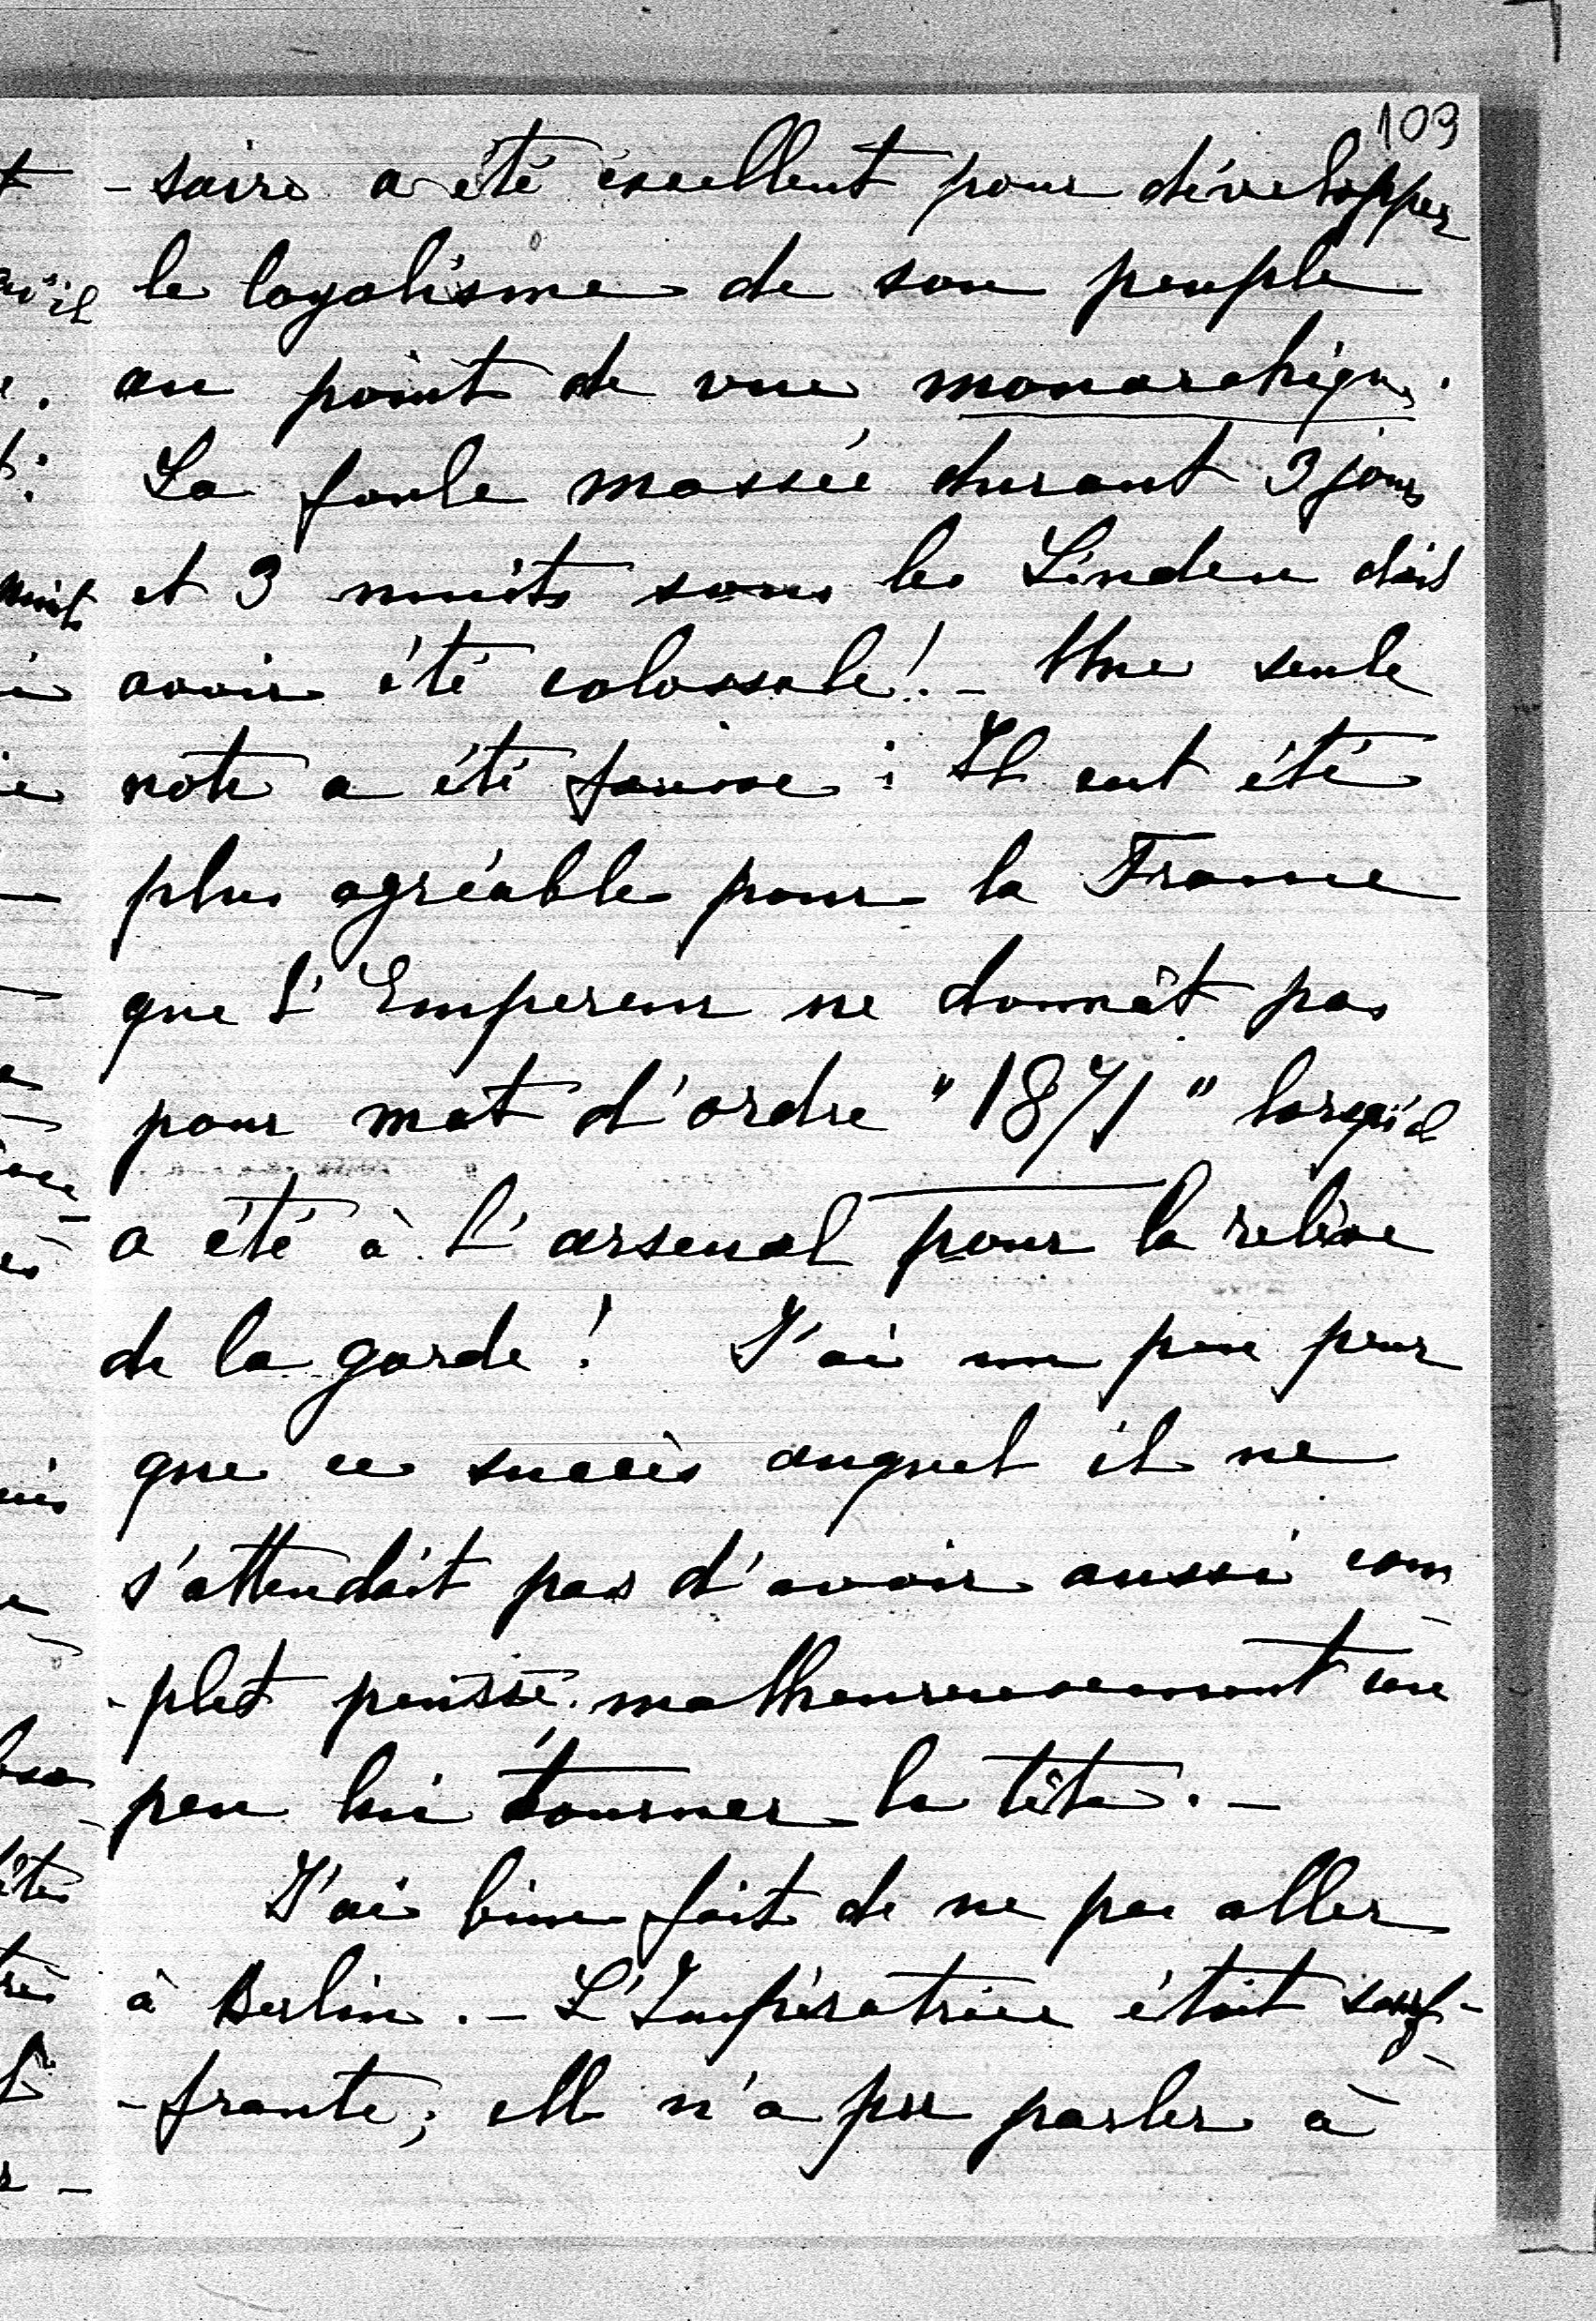 109
-saire a été excellent pour développer
le loyalisme de son peuple
au point de vue monarchique.
La foule massée durant 3 jours
et 3 nuits sous les Linden doit
avoir été colossale! - Une seule
note a été fausse : Il eut été
plus agréable pour la France
que l'Empereur ne donnât pas
pour mot d'ordre "1871" lorsqu'il
a été à l'arsenal pour la relève
de la garde! J'ai un peu peur
que ce succès auquel il ne
s'attendait pas d'avoir aussi com
-plet puisse malheureusement un
peu lui tourner la tête. -
J'ai bien fait de ne pas aller
à Berlin. - L'Impératrice était souf-
-frante; elle n'a pu parler à